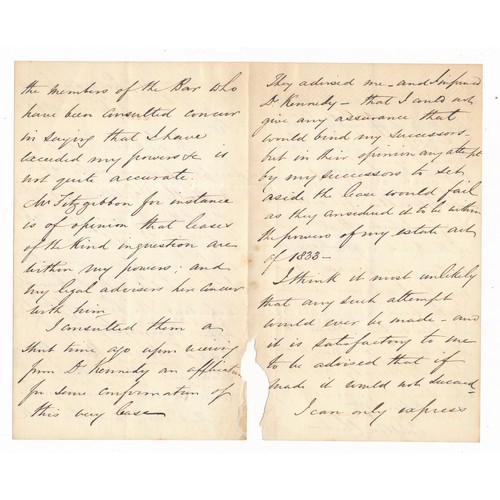 the members of the Bar who
have been consulted concur
in saying that I have
exceeded my powers &c is
not quite accurate.
Mr Fitzgibbon for instance
is of opinion that leases
of the kind in question are
within my powers; and
my legal advisers here concur
with him
I consulted them a
short time ago upon receiving
from Dr Kennedy an application
for some confirmation of
this very lease
They advised me - and I informed
Dr Kennedy - that I could not
give any assurance that
would bind my successors -
but in their opinion any attempt
by my successors to set
aside the lease would fail
as they considered it to be within
the powers of my estate act
of 1833 -
I think it most unlikely
that any such attempt
would ever be made - and
it is satisfactory to me
to be advised that if
made it would not succeed -
I can only express